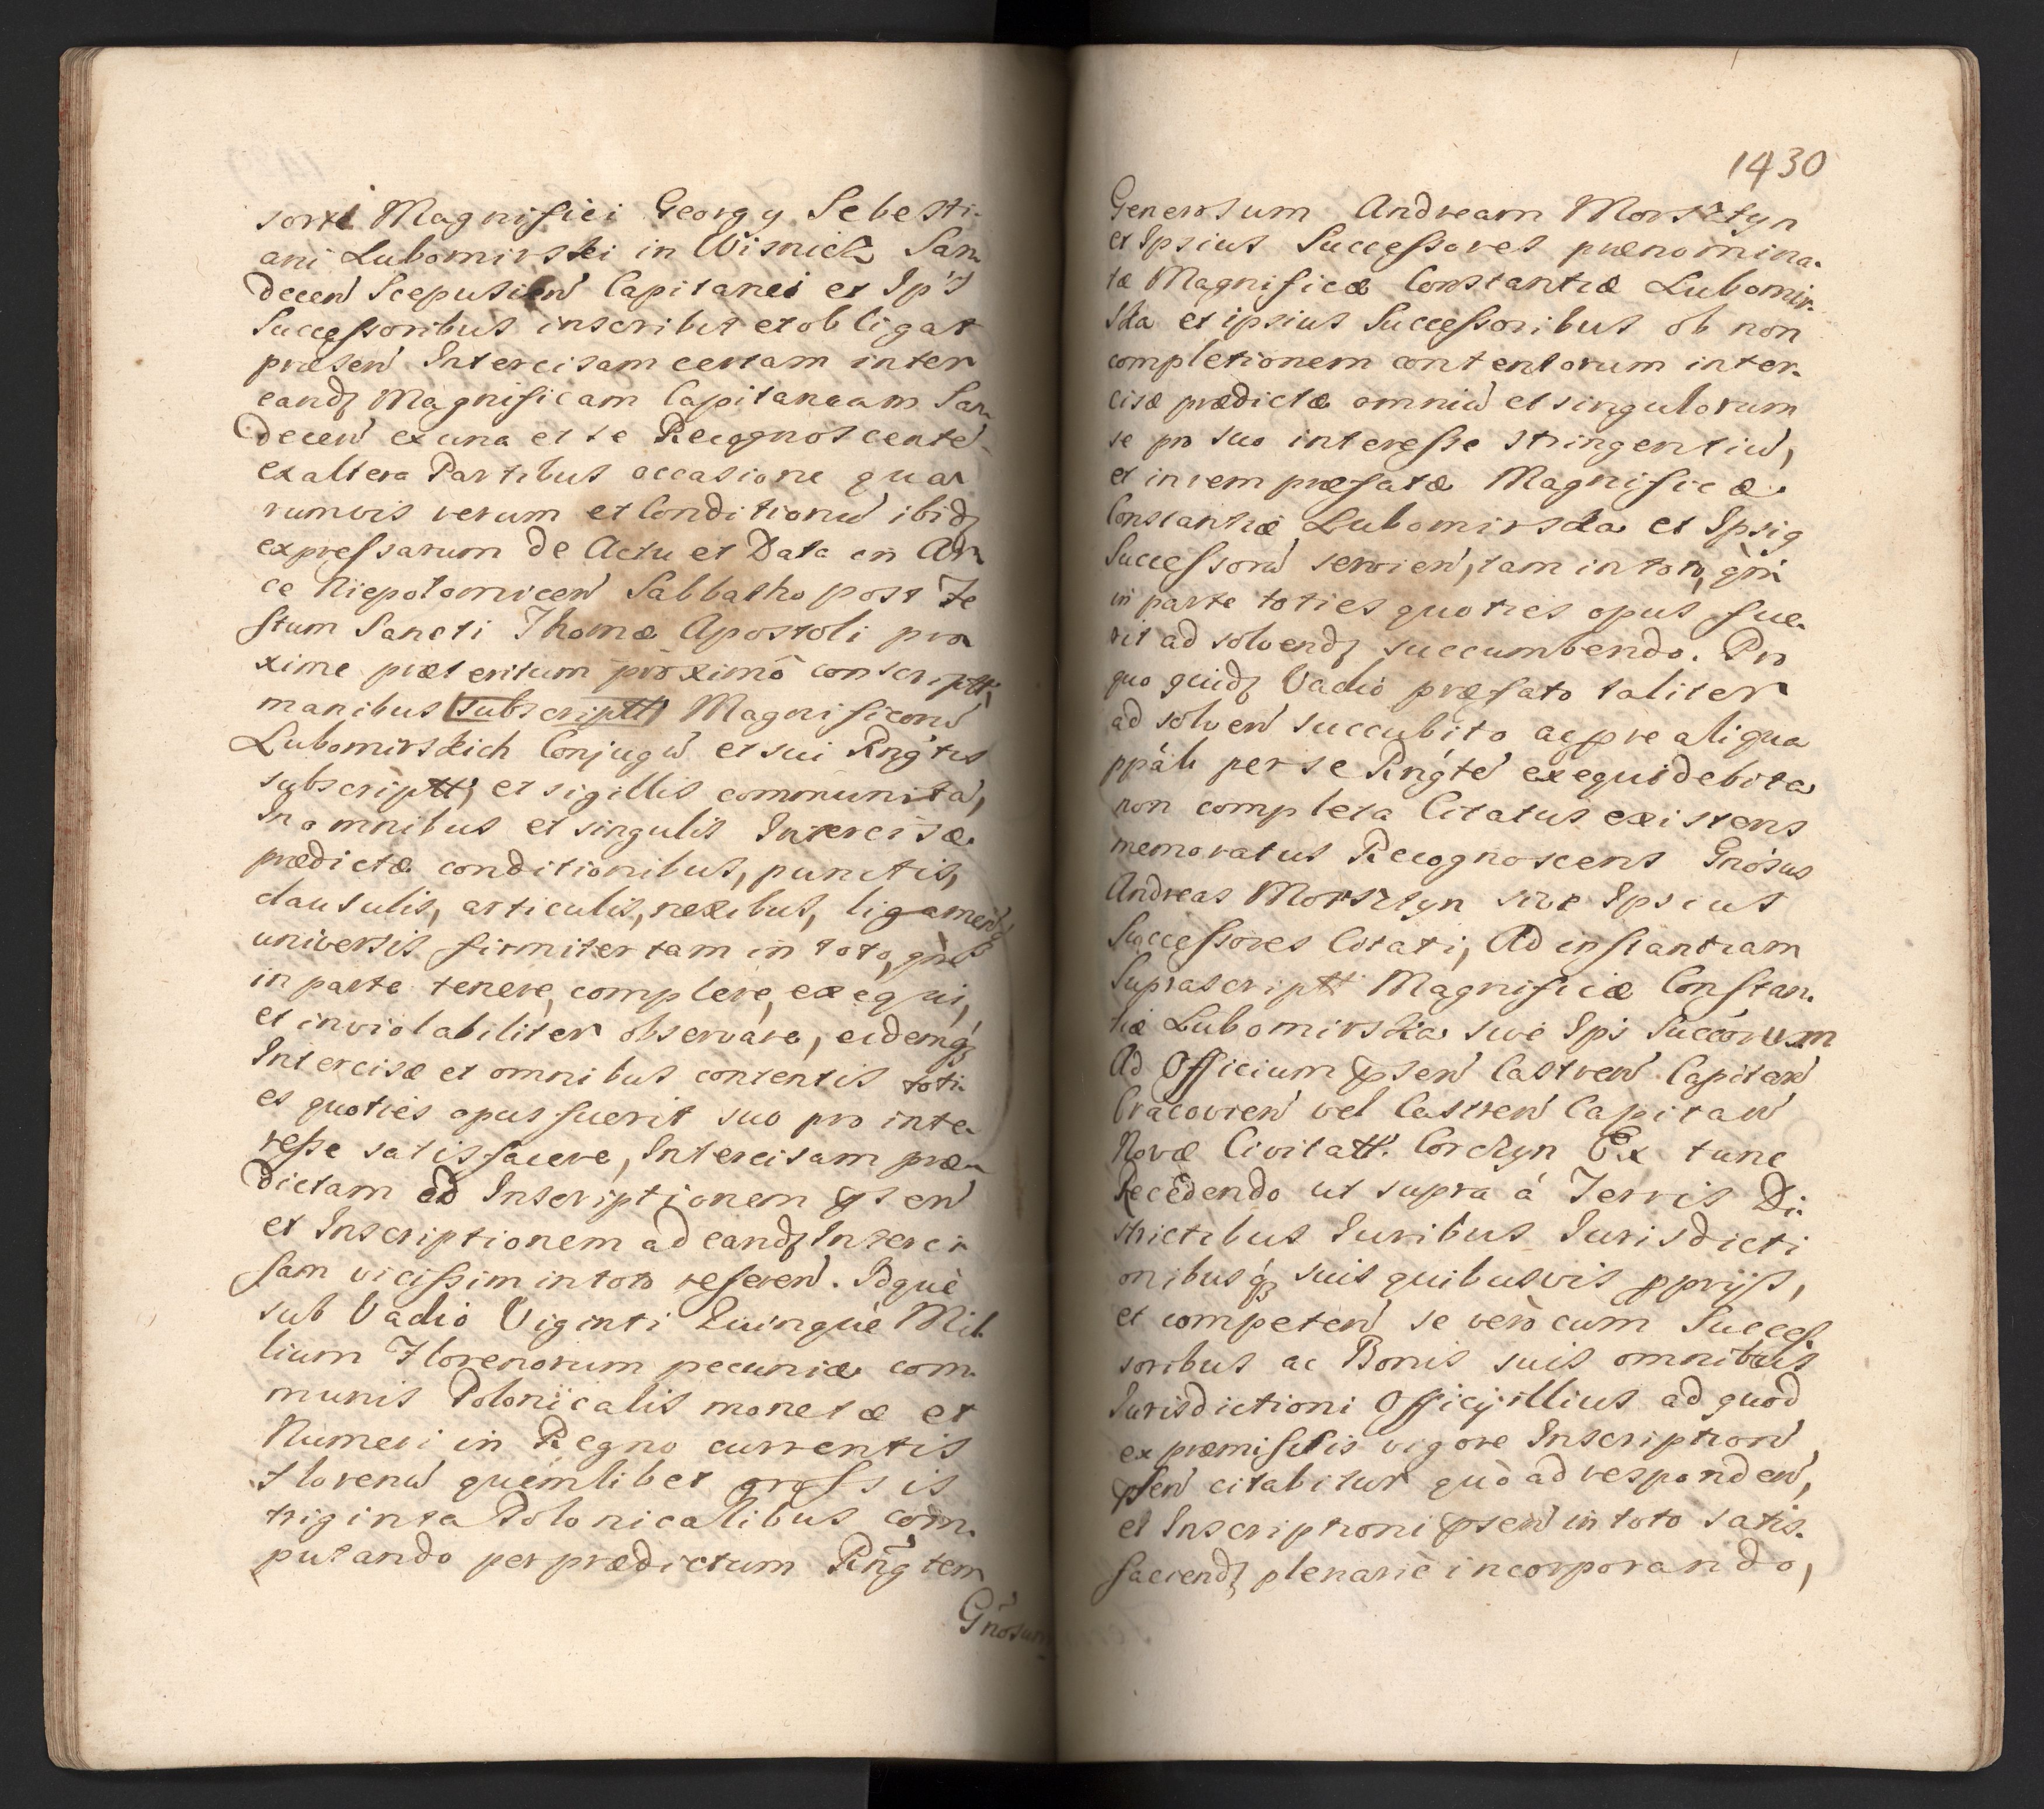 sorti Magnifici Georgy Sebesti-
ani Lubomirski in Wisnicz San
decen̄ Scepusien̄ Capitanei et Ip's
Successoribus inscribit et obligat
præsen̄ Intercisam certam inter
eandȝ Magnificam Capitaneam San
decen̄ ex una et se Recognoscente
ex altera Partibus occasione qua-
rumvis rerum et Conditionū ibidȝ
expressarum de Actu et Data in Ar
ce Niepolomicen̄ Sabbatho post Fe
stum Sancti Thomæ Apostoli pro
xime præteritum proximò conscriptt,
manibus subscriptt Magnificorū
Lubomirskich Conjugū et sui Rng̃tis
subscriptt, et sigillis communita,
In omnibus et singulis Intercisæ
prædictæ conditionibus, punctis,
clausulis, articulis, nexibus, ligamen̄
universis firmiter tam in toto, qm̀
in parte tenere, complere, exequi,
et inviolabiliter observare, eidemqȝ
Intercisæ et omnibus contentis toti-
es quoties opus fuerit suo pro inte-
resse satisfacere, Intercisam præ-
dictam ad Inscriptionem psen̄
et Inscriptionem ad eandȝ Interci-
sam vicissim in toto referen̄. Idque
sub Vadio Viginti Quinque Mil
lium Florenorum pecuniæ com-
munis Polonicalis monetæ et
Numeri in Regno currentis
Florenū quemlibet grossis
triginta Polonicalibus com-
putando per prædictum Rng̃tem
Gñosum
1430
Generosum Andream Morsztyn
et Ipsius Successores prænomina-
tæ Magnificæ Constantiæ Lubomir-
ska et ipsius Successoribus ob non
completionem contentorum inter-
cisæ prædictæ omniū et singulorum
se pro suo interesse stringentiū,
et in rem præfatæ Magnificæ
Constantiæ Lubomirska et Ipsig
Successorū servien̄, tam in toto, qm̀
in parte toties quoties opus fue-
rit ad solvendȝ succumbendo. Pro
quo quidȝ Vadio præfato taliter
ad solven̄ succubito ac pre aliqua
ppáli per se Rng̃te exequi debita
non completa Citatus existens
memoratus Recognoscens Gnosus
Andreas Morsztyn sive Ipsius
Successores Citati, Ad instantiam
Suprascriptt Magnificæ Constan-
tiæ Lubomirska sive Ip̄s Succorum
Ad Officium psen̄ Castren̄ Capitan̄
Cracovien̄ vel Castren̄ Capitan̄
Novæ Civitatt. Corczyn Ex tunc
Recedendo ut supra á Terris Di-
strictibus Iuribus Iurisdicti
onibusqȝ suis quibusvis pprijs,
et competen̄ se vero cum Succes
soribus ac Bonis suis omnibus
Iurisdictioni Officij illius ad quod
ex præmissis vigore Inscription̄
psen̄ citabitur quo ad responden̄,
et Inscriptioni psen̄ in toto satis-
faciendȝ plenarie incorporando,